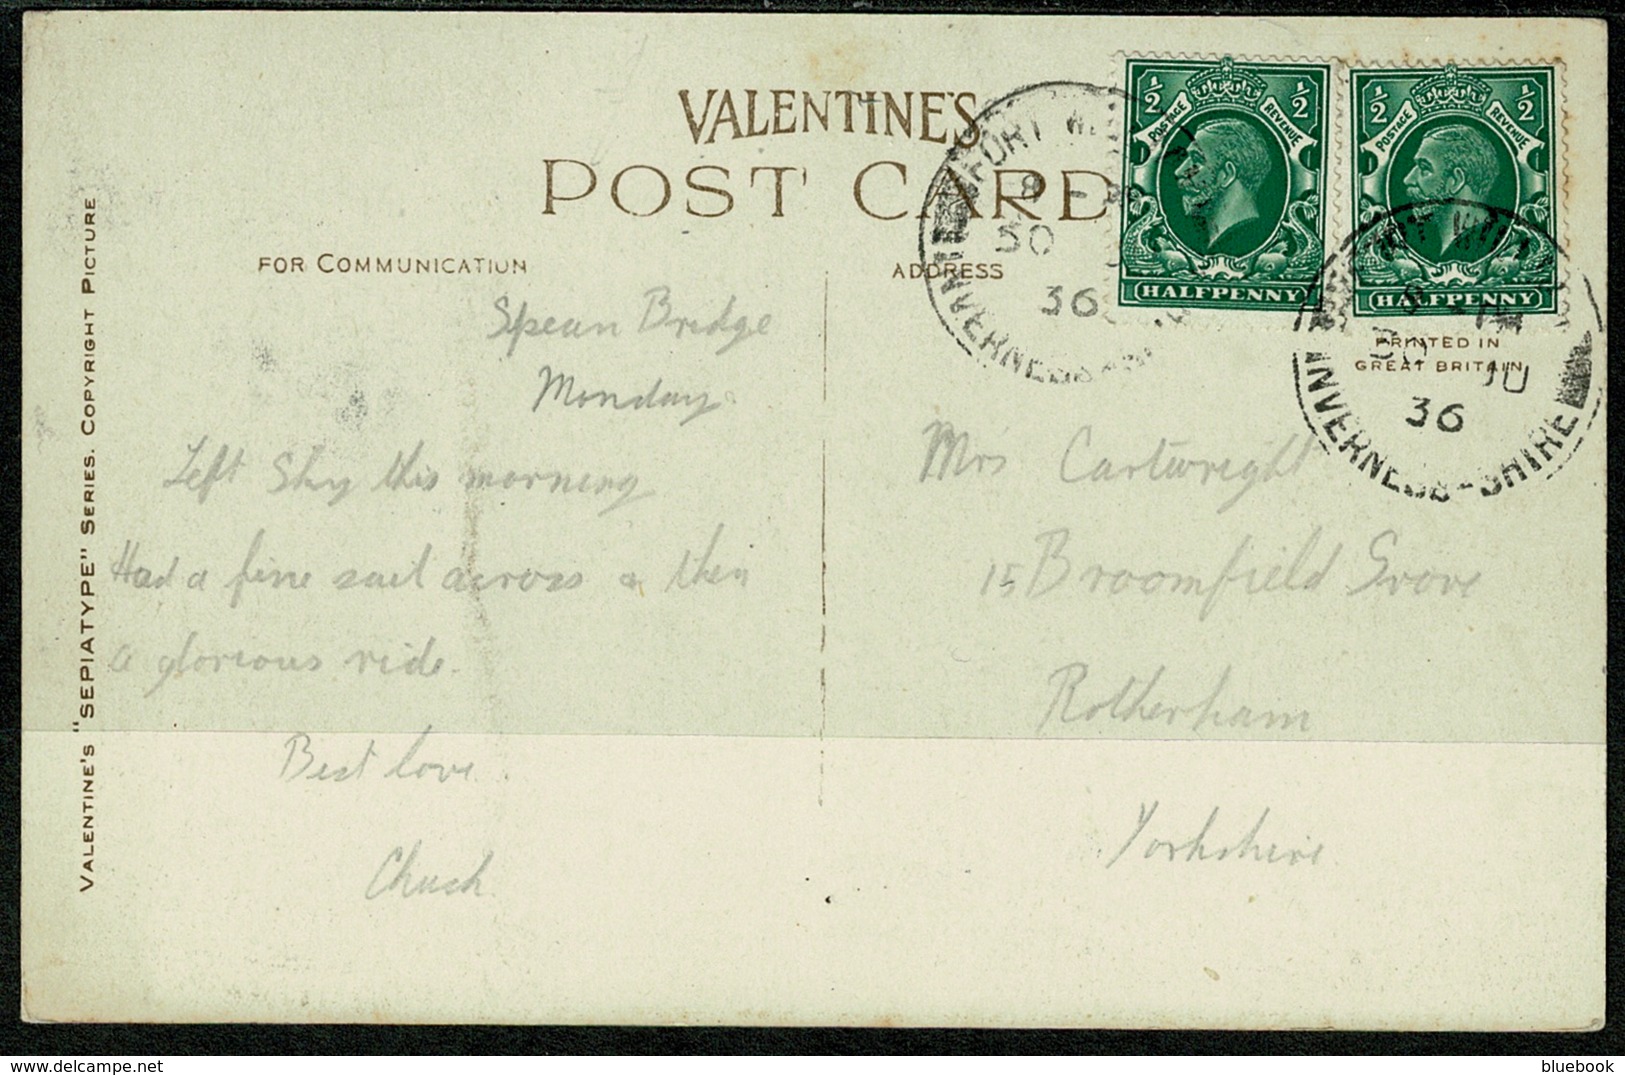 VALENTINE'S
POST CARD
FOR COMMUNICATION
ADDRESS
VALENTINE'S "SEPIATYPE" SERIES. COPYRIGHT PICTURE
Spean Bridge
Monday
Left Sky this morning
Had a fine sail across & then
a glorious ride.
Best love
Chuck
Mrs Cartwright
15 Broomfield Grove
Rotherham
Yorkshire
PRINTED IN
GREAT BRITAIN
½ ½
POSTAGE REVENUE
HALFPENNY
½ ½
POSTAGE REVENUE
HALFPENNY
FORT
30
36
INVERNESS-SHIRE
36
INVERNESS-SHIRE
delcampe.net
bluebook